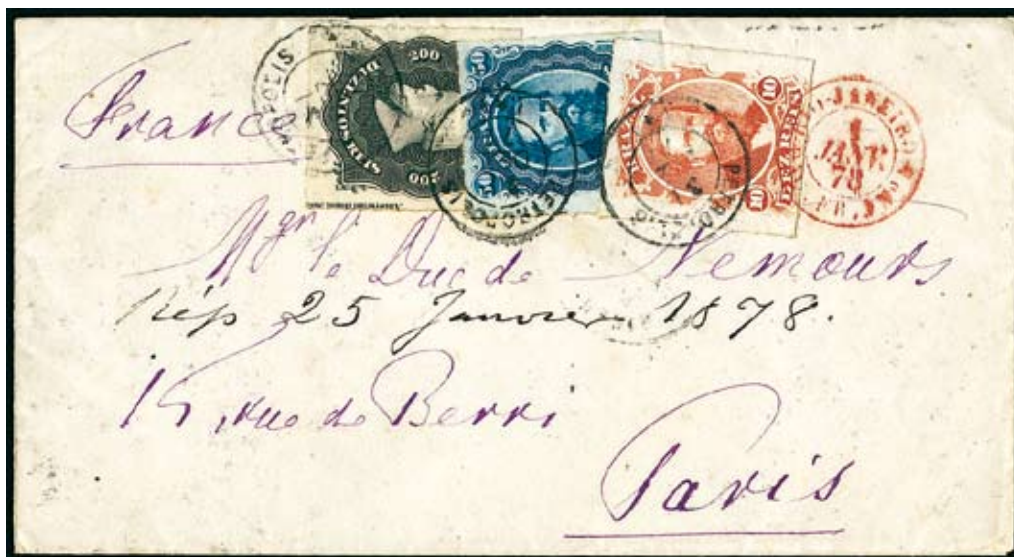 France
200
DUZENTOS REIS
200
50
50
10
DEZ REIS
10
PETROPOLIS
1
JANR
78
Mgr le Duc de Nemours
Rép 25 Janvier 1878.
15, rue de Berri
Paris